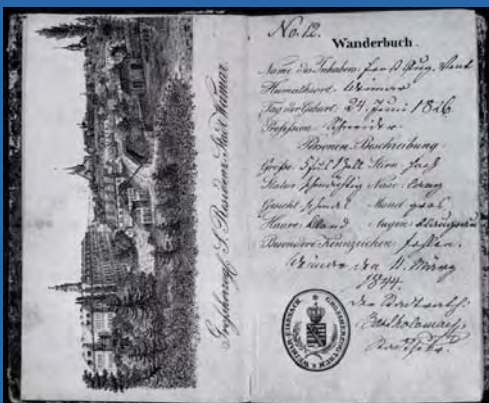 Großherzogl. S. Residenz-Stadt Weimar.
No. 12.
Wanderbuch.
Name des Inhabers: Aug.
Heimathsort: Weimar
Tag der Geburt: 24. Juni 1826
Profession: Schneider.
Personen-Beschreibung
Größe: 5 Fuß Stirn: hoch
Statur: schmächtig Nase: lang
Gesicht: schmal Mund: gros
Haare: blond Augen: blaugrau
Besondere Kennzeichen: fehlen.
Weimar den 11. März
1844.
Der Stadtrath.